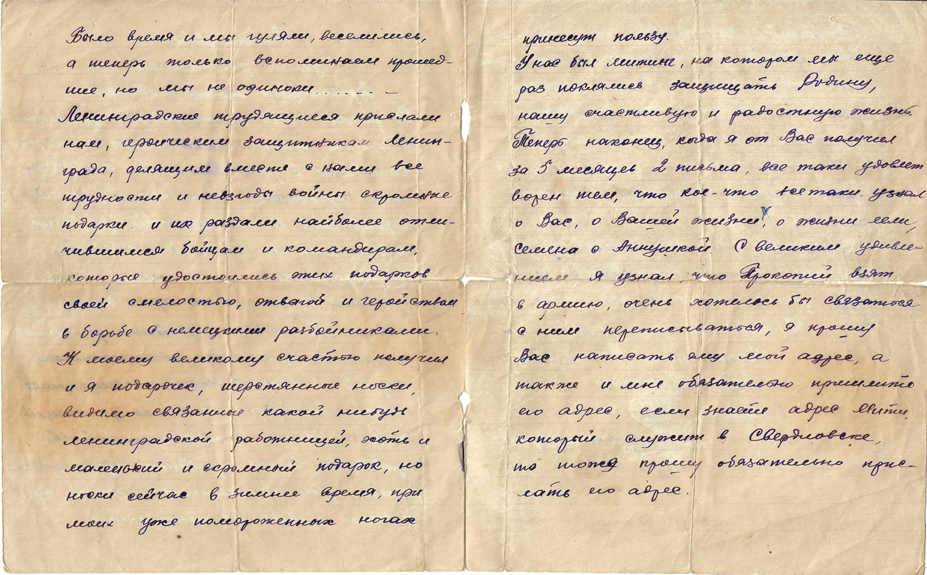 Было время и мы гуляли, веселились,
а теперь только вспоминаем прошед-
шие, но мы не одиноки.......
Ленинградские трудящиеся прислали
нам, героическим защитникам Ленин-
града, делящим вместе с нами все
трудности и невзгоды войны скромные
подарки и их раздали наиболее отли-
чившимся бойцам и командирам,
которые удостоились этих подарков
своей смелостью, отвагой и геройством
в борьбе с немецкими разбойниками.
К моему великому счастью получил
и я подарочек, шерстянные носки,
видимо связанные какой нибудь
ленинградской работницей, хоть и
маленький и скромный подарок, но
носки сейчас в зимнее время, при
моих уже помороженных ногах
принесут пользу.
У нас был митинг, на котором мы еще
раз поклялись защищать Родину,
нашу счастливую и радостную жизнь.
Теперь наконец, когда я от Вас получил
за 5 месяцев 2 письма, все таки удовлет
ворен тем, что кое-что все таки узнал
о Вас, о Вашей жизни, о жизни
Семена с Аннушкой. С великим удивле-
нием я узнал, что Прокопий взят
в армию, очень хотилось бы связаться
с ним переписываться, я прошу
Вас написать ему мой адрес, а
также и мне обязательно пришлите
его адрес, если знаете адрес Мити,
который служит в Свердловске,
то тоже прошу обязательно прис-
лать его адрес.